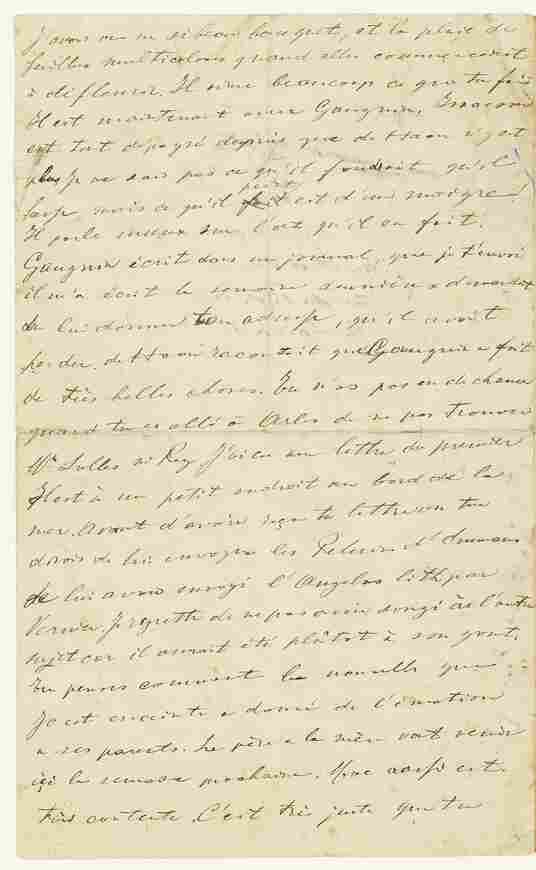 J'avais vu un si beau bouquet, et la pluie de
feuilles multicolores quand elles commençaient
à défleurir. Il aime beaucoup ce que tu fais
Il est maintenant avec Gauguin, Isaacson
est tout dépaysé depuis que de Haan n'y est
plus je ne sais pas ce qu'il faudrait qu'il
fasse mais ce qu'il peint est d'un maigre!
Il parle mieux sur l'art qu'il en fait.
Gauguin écrit dans un journal, que je t'envoi
il m'a écrit la semaine dernière demandait
de lui donner ton adresse, qu'il avait
perdu. de Haan racontait que Gauguin a fait
de très belles choses. Tu n'as pas eu de chance
quand tu es allé à Arles de ne pas trouver
Mr Salles ni Rey J'ai eu une lettre du premier
Il est à un petit endroit au bord de la
mer. Avant d'avoir reçu ta lettre où tu
disais de lui envoyer les Pélerins d'Emmaus
je lui avais envoyé l'Angelus lith par
Vernier Je regrette de ne pas avoir songé à l'autre
sujet car il aurait été plutôt à son gout.
Tu penses comment la nouvelle que
Jo est enceinte a donné de l'émotion
a ses parents. Le père & la mère vont venir
içi la semaine prochaine. Moe aussi est
très contente. C'est très juste que tu